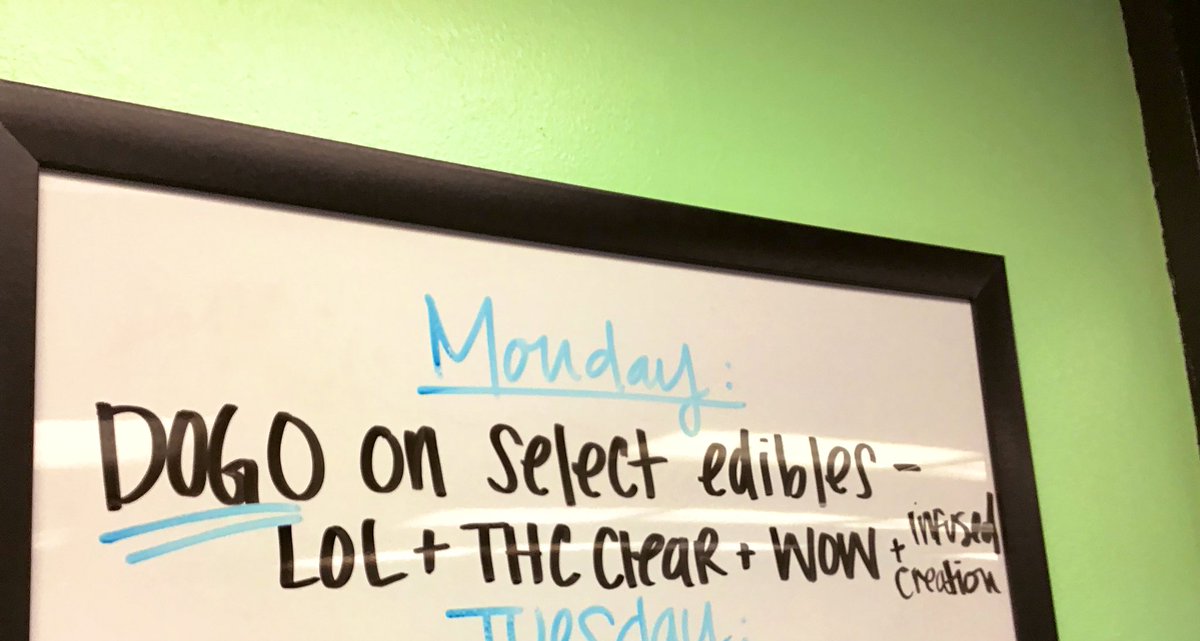 Monday:
DOGO on select edibles -
LOL + THC Clear + WOW + infused creation
Tuesday: